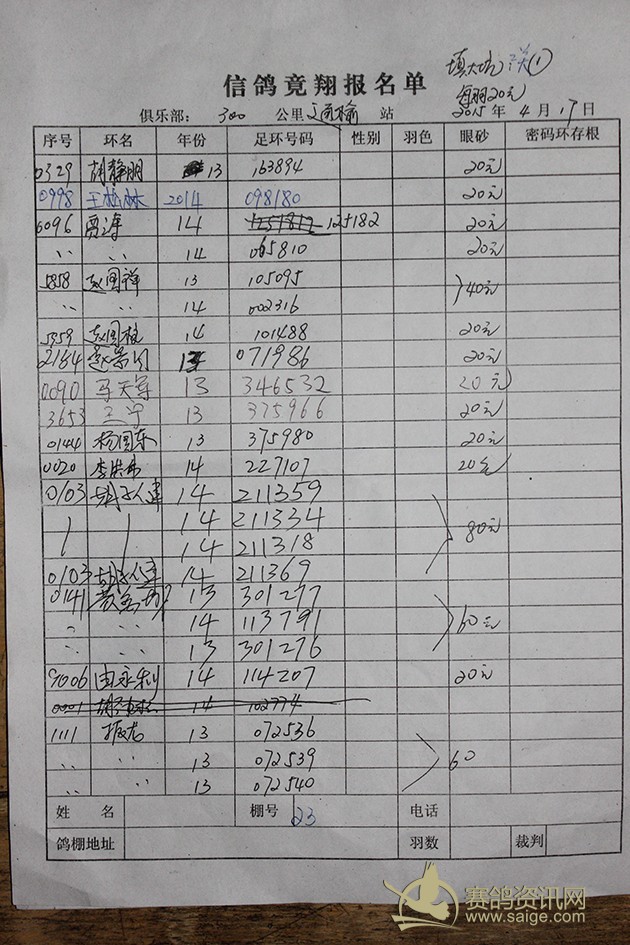 每羽20元
信鸽竟翔报名单
俱乐部: 300 公里 通榆 站 2015 年 4 月 17 日
序号 环名 年份 足环号码 性别 羽色 眼砂 密码环存根
0329 胡静朋 13 163894 20元
0998 王松林 2014 098180 20元
0096 贾涛 14 125182 20元
〃 〃 14 065810 20元
5858 赵国祥 13 105095 40元
〃 〃 14 002316
5959 赵国栓 14 101488 20元
2164 13 071986 20元
0090 马天军 13 346532 20元
3653 王宁 13 375966 20元
0144 杨国东 13 375980 20元
0020 14 227107 20元
0103 14 211359
14 211334 80元
14 211318
0103 14 211369
0141 13 301277
〃 〃 14 113791 60元
〃 〃 13 301276
9006 由永利 14 114207 20元
0001 14 102774
1111 振龙 13 072536
〃 〃 13 072539 60
〃 〃 13 072540
姓 名 棚号 23 电话
鸽棚地址 羽数 裁判
赛鸽资讯网
www.saige.com